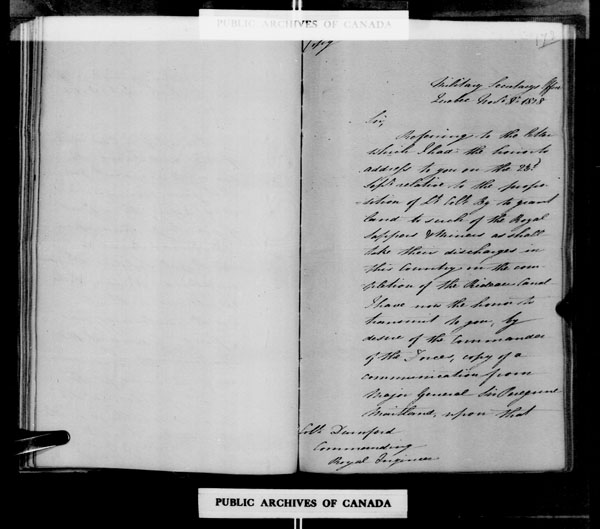 PUBLIC ARCHIVES OF CANADA
Copy
Military Secretarys Office
Quebec Novr. 8th 1828
Sir,
Referring to the letter
which I had the honor to
address to you on the 23d
Septr. relative to the propo-
sition of Lt. Coll. By to grant
land to such of the Royal
Sappers & Miners as shall
take their discharges in
this Country on the com-
pletion of the Rideau Canal
I have now the honor to
transmit to you, by
desire of the Commander
of the Forces, copy of a
communication from
Major General Sir Peregrine
Maitland, upon that
Coll. Durnford
Commanding
Royal Engineer
PUBLIC ARCHIVES OF CANADA